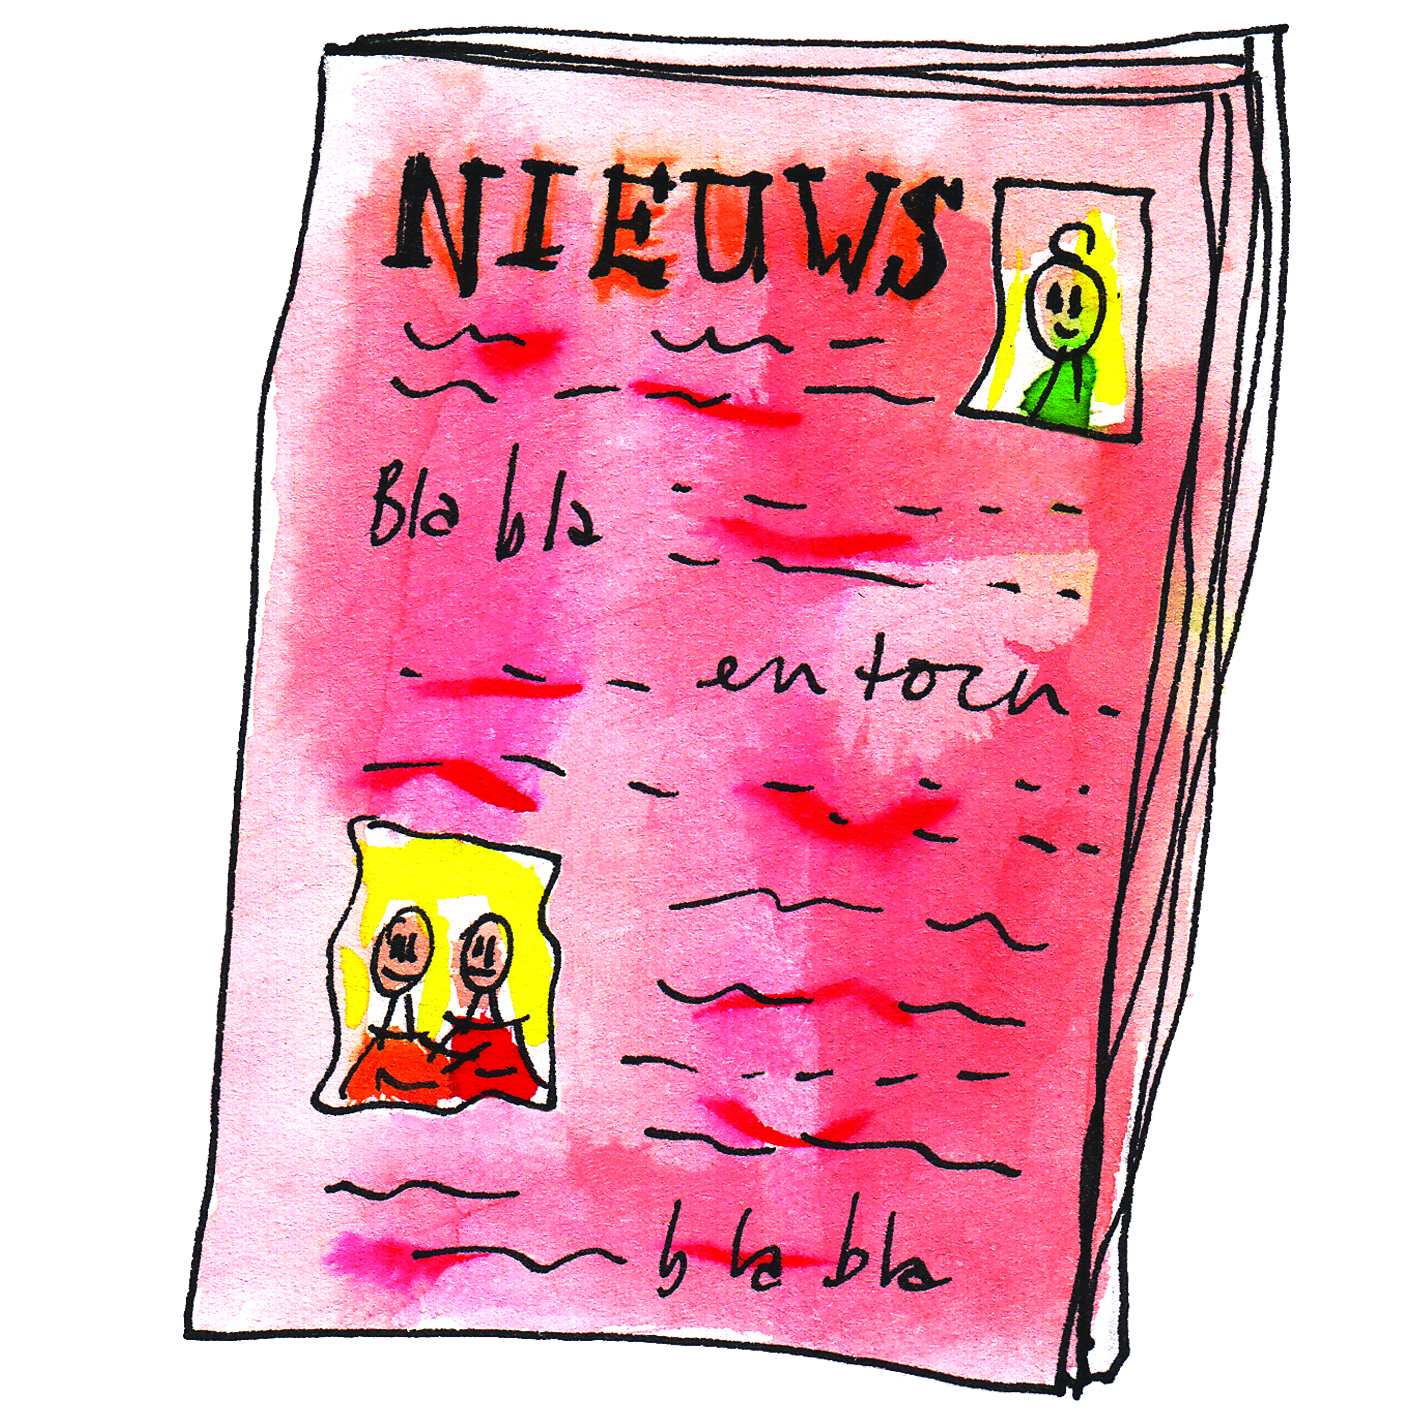 NIEUWS
Bla bla
en toen
bla bla